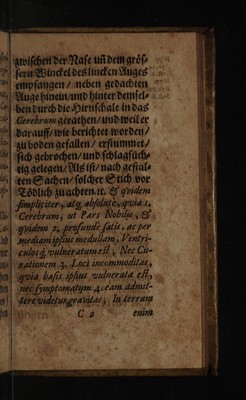 zwischen der Nase uñ dem grös-
sern Winckel des lincken Auges
empfangen / neben gedachten
Auge hinein/und hinter demsel-
ben durch die Hirnschale in das
Cerebrum gerathen / und weil er
darauff/ wie berichtet worden/
zu boden gefallen / erstummet/
sich gebrochen/ und schlagsüch-
tig gelegen/ Als ist/ nach gestal-
ten Sachen/ solcher Stich vor
Tödlich zu achten. ꝛc. & qvidem
simpliciter, atq; absolutè, qvia 1.
Cerebrum, ut Pars Nobilis, &
qvidem 2. profundè satis, ac per
mediam ipsius medullam, Ventri-
culosq; vulneratum est, Nec Cu-
rationem 3. Loci incommoditas,
qvia basis ipsius vulnerata est,
nec symptomatum 4. eam admit-
tere videtur gravitas; In terram
C 2 enim